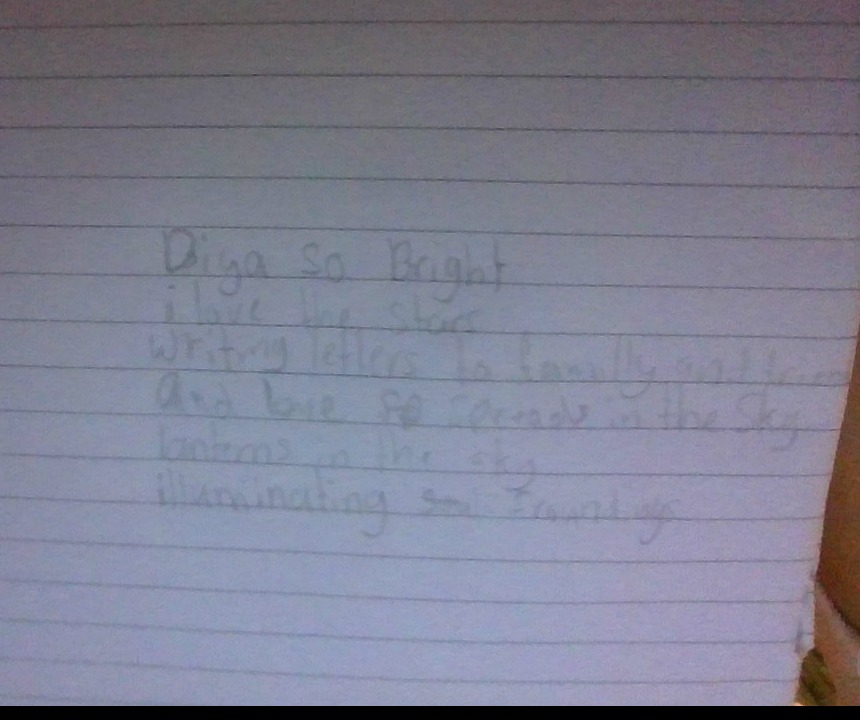 Diya so Bright
i love the stars
writing letters to familly and
And love spreads in the sky
lanterns in the sky
illuminating